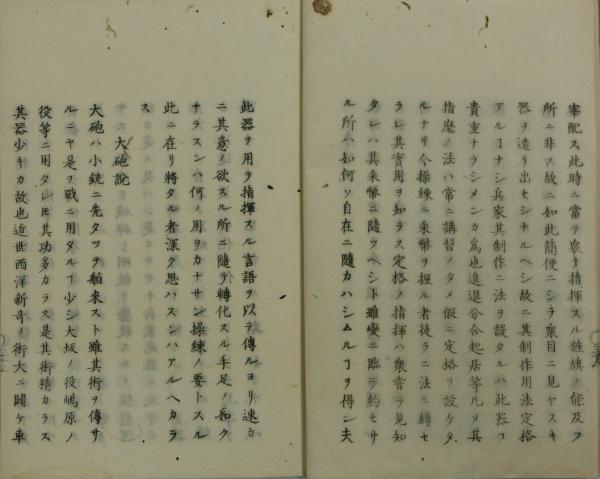 宰配ス此時ニ當テ衆ヲ指揮スル旌旗ノ能及フ
所ニ非ス故ニ如此簡便ニシテ衆目ニ見ヤスキ
器ヲ造リ出セシナルヘシ故ニ其制作用法定格
アルヿナシ兵家其制作ニ法ヲ設タルハ此器ヲ
貴重ナラシメンカ為也進退分合起居等凡ソ其
指麾ノ法ハ常ニ講習ノタメ假ニ定格ヲ設ケタ
ルナリ今操練ニ采幣ヲ握ル者徒ラニ法ニ縛セ
ラレ其實用ヲ知ラス定格ノ指揮ハ衆嘗テ見知
タレハ其采幣ニ隨ラヘシト雖變ニ臨テ約セサ
ル所ハ如何ソ自在ニ隨カハシムルヿヲ得ン夫
此器ヲ用テ指揮スル言語ヲ以テ傳ルヨリ速カ
ニ其意ノ欲スル所ニ隨テ轉化スル手足ノ如ク
ナラスンハ何ノ用ヲカナサン操練ノ要トスル
此ニ在リ將タル者深ク思ハスンハアルヘカラ
ス
大砲說
大砲ハ小銃ニ先タツテ舶來スト雖其術ヲ傳サ
ルニヤ是ヲ戰ニ用タルヿ少シ大坂ノ役嶋原ノ
役等ニ用タレ𪜈其功多カラス是其術精カラス
其器少キカ故也近世西洋新奇ノ術大ニ闢ケ車